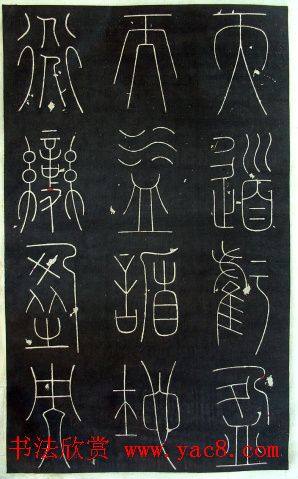 天道虧盈
而益謙地
道變盈而
书法欣赏 www.yac8.com